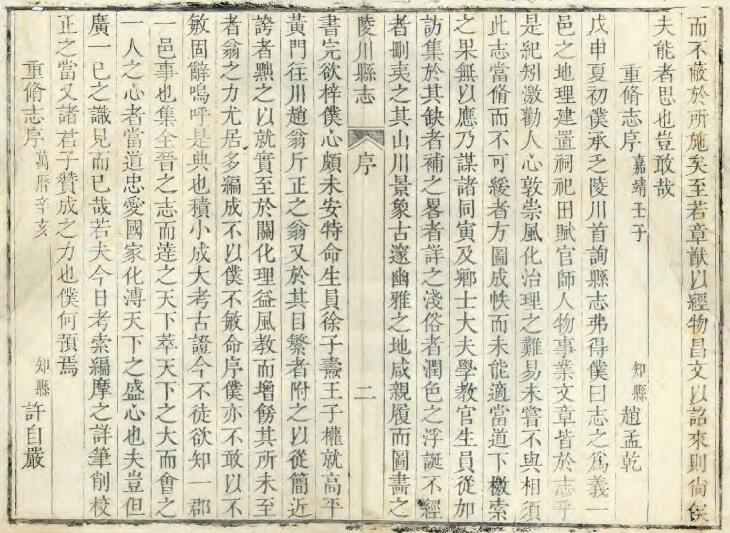 而不蔽於所施矣至若章猷以經物昌文以詔來則尚俟
夫能者思也豈敢哉
重脩志序 嘉靖壬子 知縣 趙孟乾
戊申夏初僕承乏陵川首詢縣志弗得僕曰志之爲義一
邑之地理建置祠祀田賦官師人物事業文章皆於志乎
是紀矧激勸人心敦崇風化治理之難易未嘗不與相須
此志當脩而不可緩者方圖成帙而未能適當道下檄索
之果無以應乃謀諸同寅及鄉士大夫學教官生員從加
訪集於其缺者補之畧者詳之淺俗者潤色之浮誕不經
者刪夷之其山川景象古邃幽雅之地咸親履而圖畵之
陵川縣志 序 二
書完欲梓僕心頗未安特命生員徐子壽王子權就高平
黃門往川趙翁斤正之翁又於其目繁者附之以從簡近
誇者黜之以就實至於關化理益風教而增餝其所未至
者翁之力尤居多編成不以僕不敏命序僕亦不敢以不
敏固辭嗚呼是典也積小成大考古證今不徒欲知一郡
一邑事也集全晉之志而達之天下萃天下之大而會之
一人之心者當道忠愛國家化溥天下之盛心也夫豈但
廣一已之識見而已哉若夫今日考索編摩之詳筆削校
正之當又諸君子贊成之力也僕何預焉
重脩志序 萬曆辛亥 知縣 許自嚴